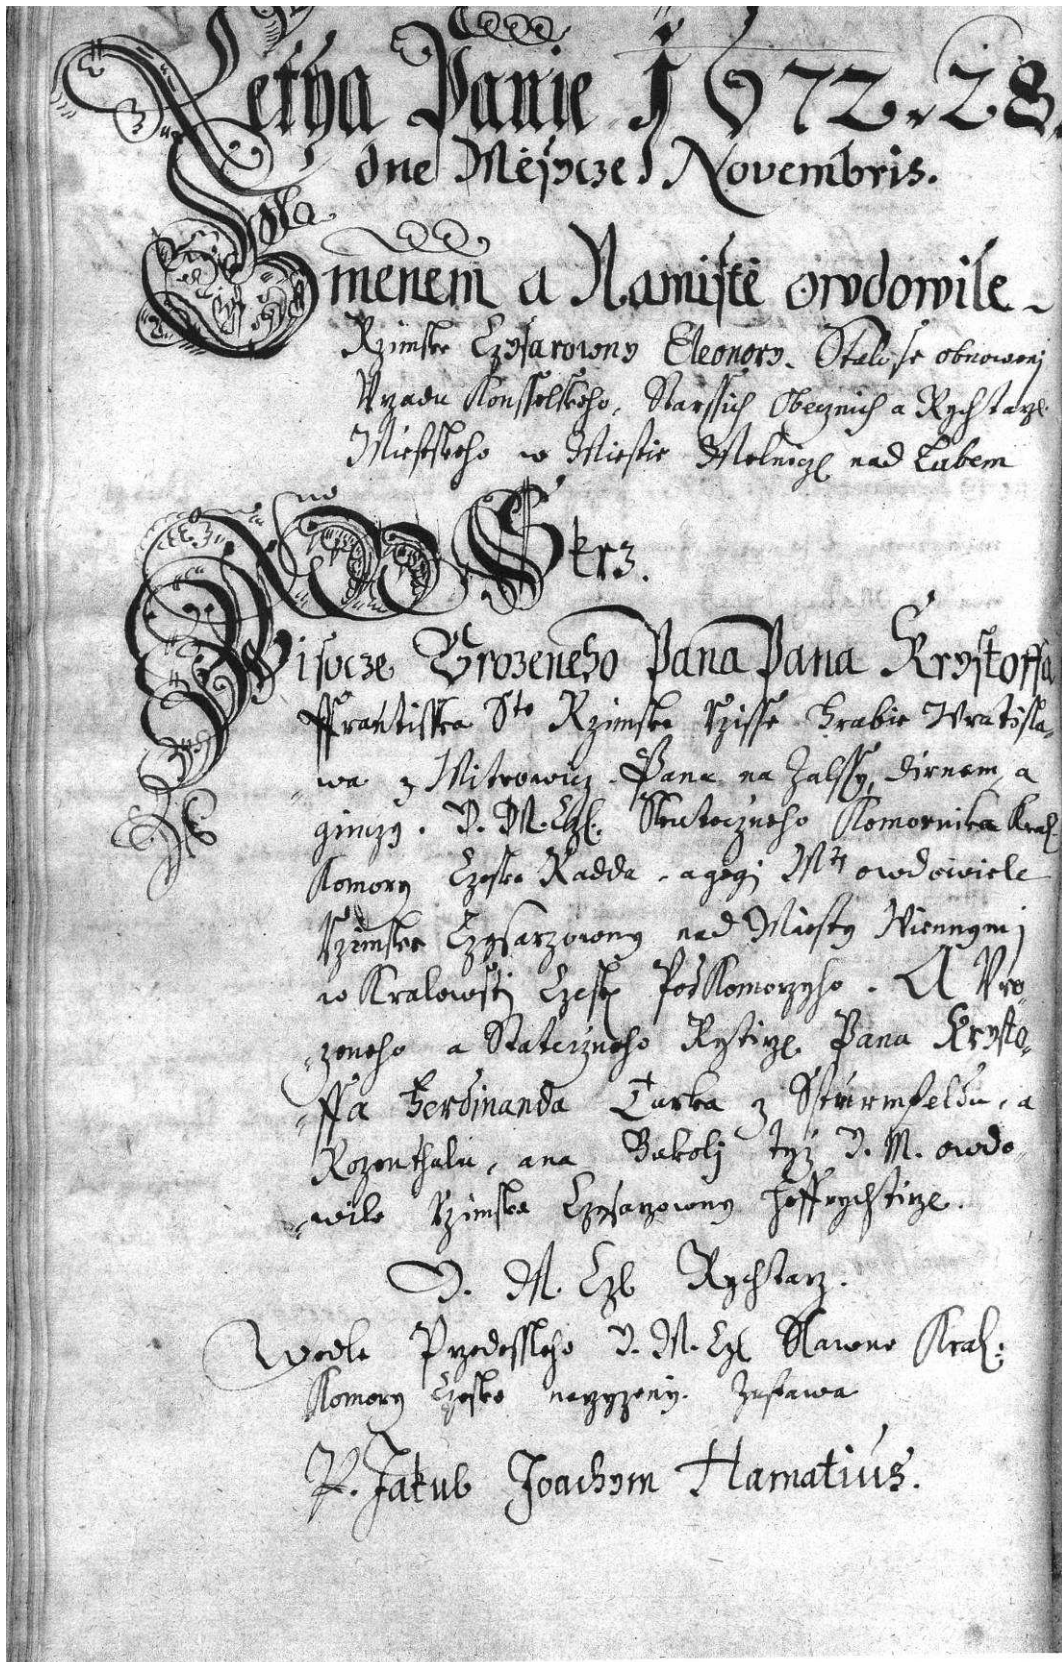 Letha Panie 1672. 28
dne Mėsycze Novembris.
Gmenem a Namistė owdowile
Rzimske Czysarowny Eleonory. Stalo se obnoweni
Vrzadu Konsselskeho, Starssich Obecznich a Rychtarze
Miestskeho w Miestie Melnicze nad Labem
Skrz.
Wisocze Vrozeneho Pana Pana Krystoffa
Ffrantisska Ste Rzimske Rzisse Hrabie Wratisla-
-wa z Mitrowicz. Pana na Zalssy, Dirnem, a
ginczy. J. M. Cz. Skuteczneho Komornika Kral.
Komory Czeske Radda. a gegi Mti owdowiele
Rzimske Czysarzowny nad Miesty Wiennymi
w Kralowstwi Czeske PodKomorzyho. A Vro-
-zeneho a Stateczneho Rytirze Pana Krysto-
-ffa Ferdinanda Turka z Sturmfeldu, a
Rozenthalu, ana Bukoli tyz J. M. owdo-
-wile Rzimske Czysarzowny Hoffrychtirze.
J. M. Cz Rychtarz.
Wedle Przedesleho J. M. Cz Slawne Kral:
Komory Czeske narzyzeny. Zustawa
P. Jakub Joachym Hamatius.